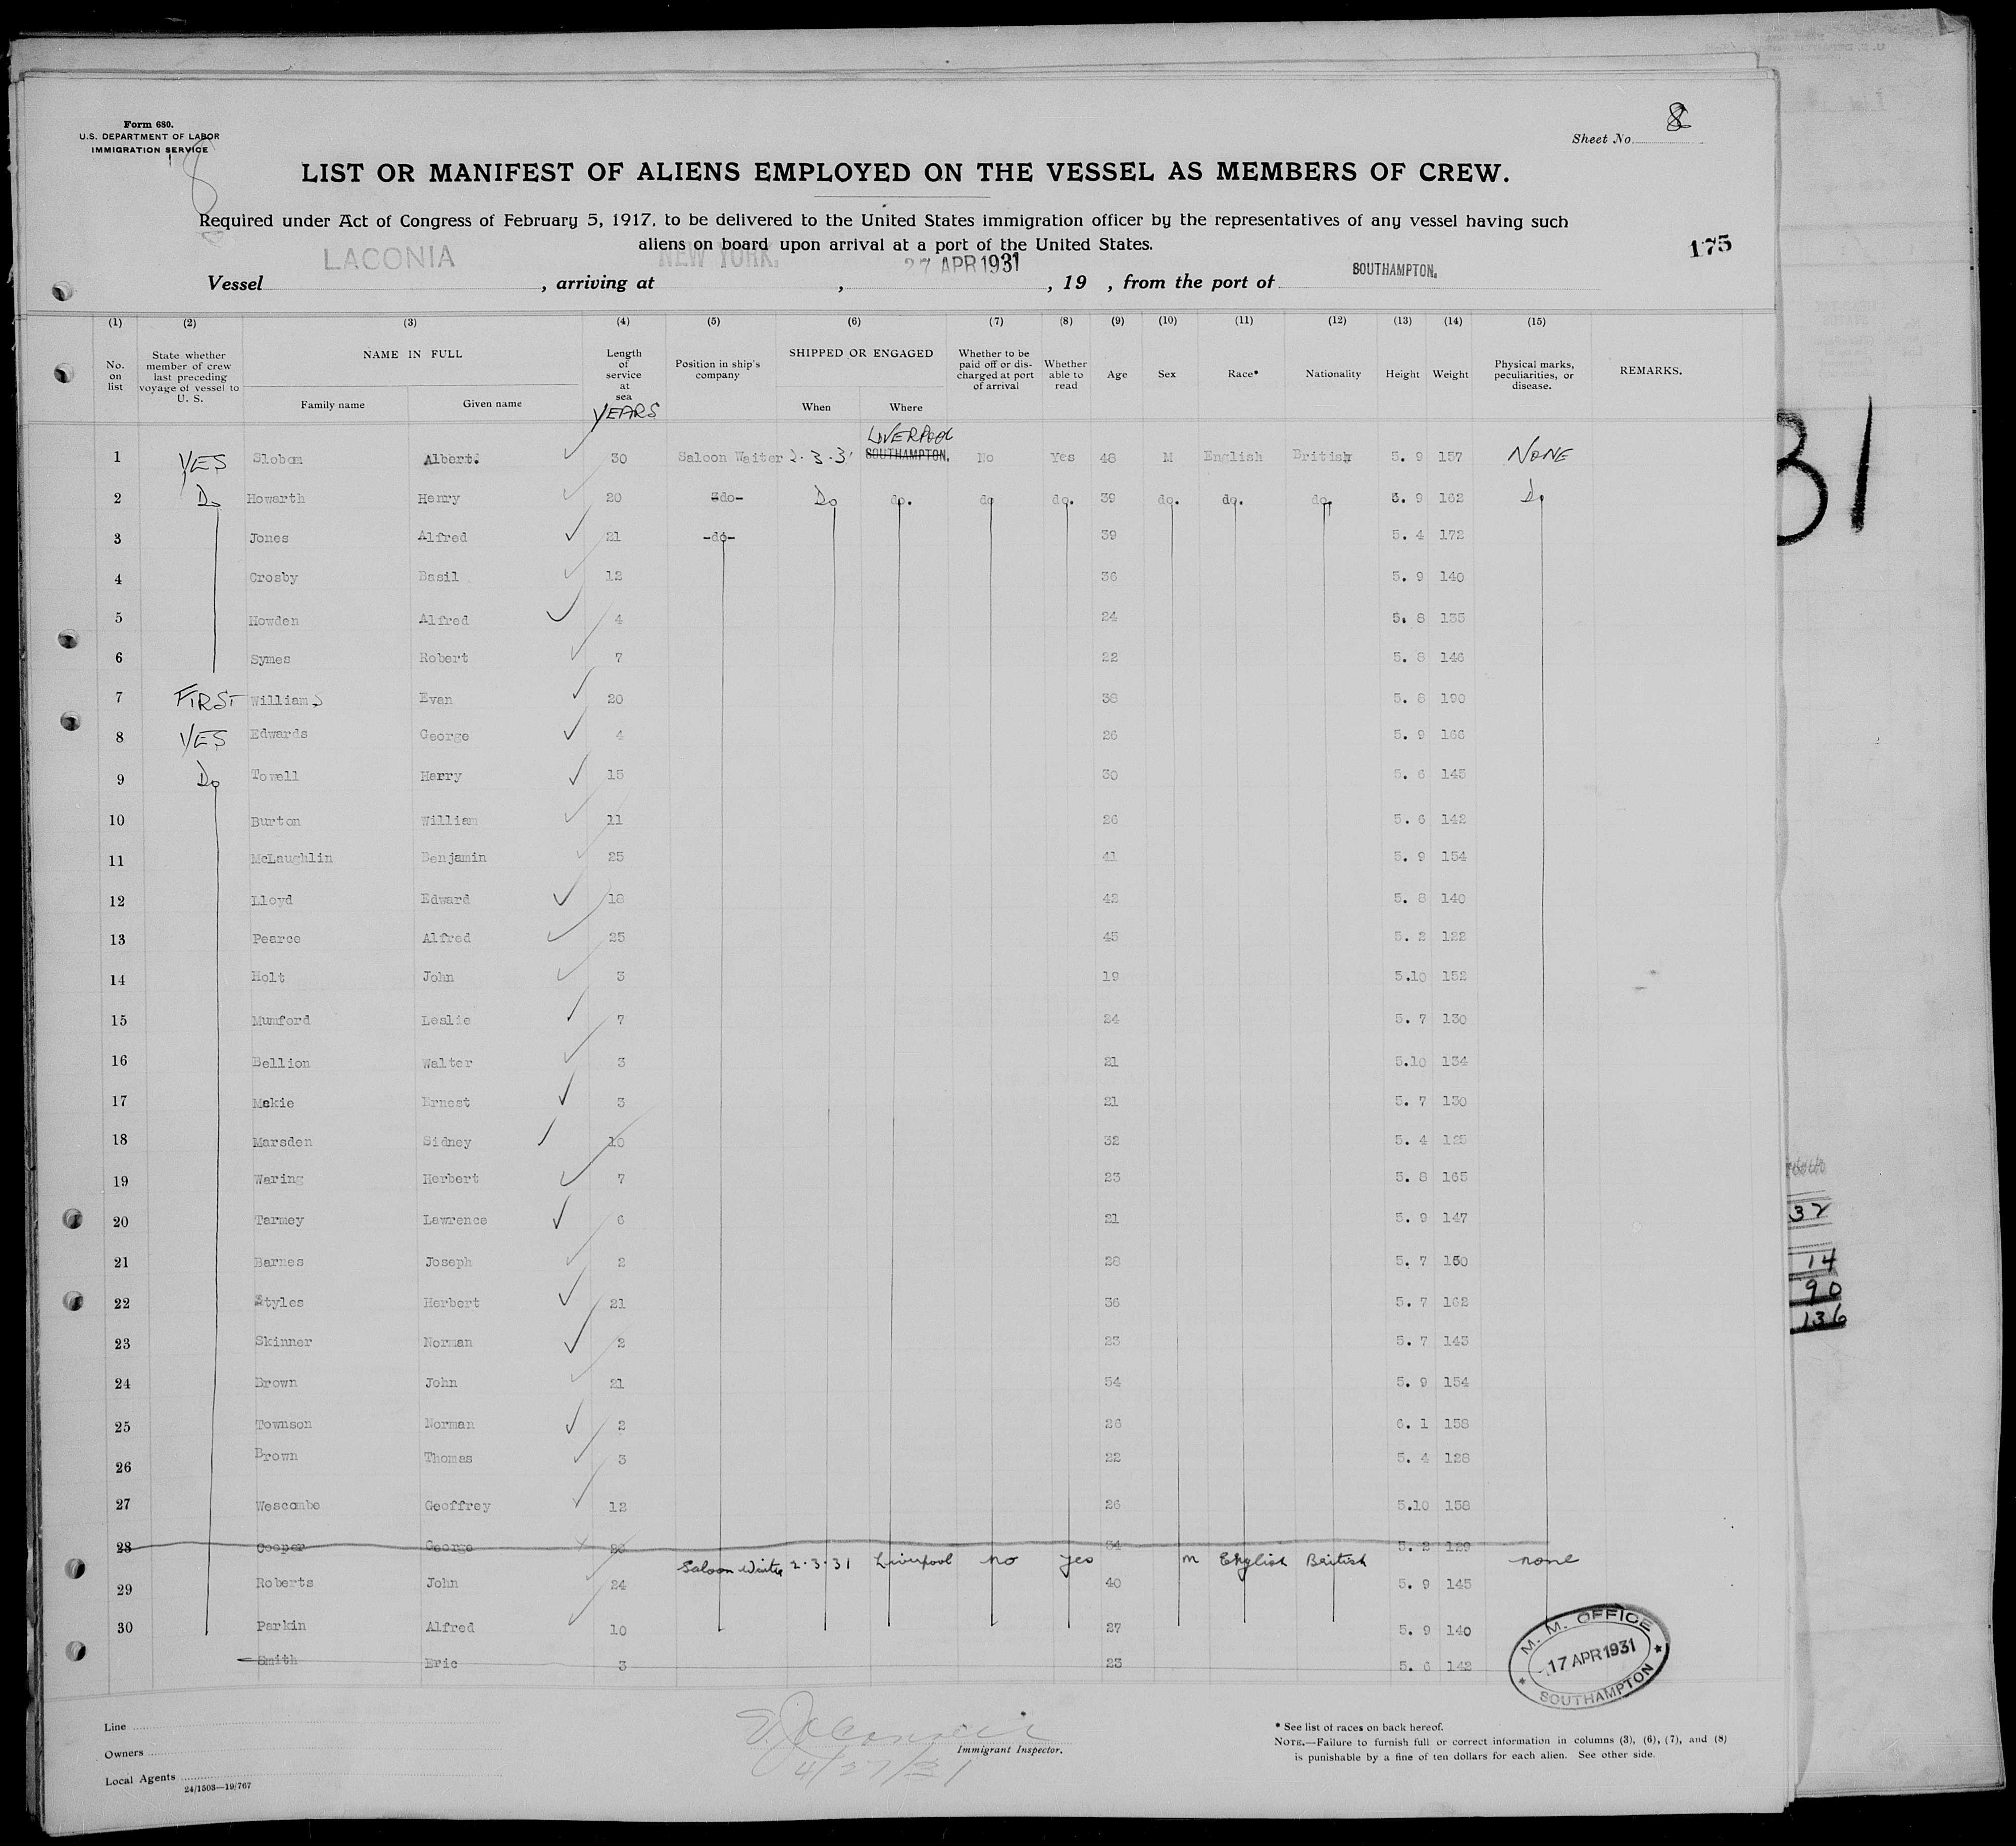 Form 680.
U.S. DEPARTMENT OF LABOR
IMMIGRATION SERVICE
8
Sheet No. 8
LIST OR MANIFEST OF ALIENS EMPLOYED ON THE VESSEL AS MEMBERS OF CREW.
Required under Act of Congress of February 5, 1917, to be delivered to the United States immigration officer by the representatives of any vessel having such
aliens on board upon arrival at a port of the United States.
175
Vessel LACONIA, arriving at NEW YORK., 27 APR 1931, 19 , from the port of SOUTHAMPTON.
(1) (2) (3) (4) (5) (6) (7) (8) (9) (10) (11) (12) (13) (14) (15)
No. on list State whether member of crew last preceding voyage of vessel to U. S. NAME IN FULL Family name Given name Length of service at sea YEARS Position in ship's company SHIPPED OR ENGAGED When Where Whether to be paid off or discharged at port of arrival Whether able to read Age Sex Race* Nationality Height Weight Physical marks, peculiarities, or disease. REMARKS.
LIVERPOOL
1 YES Slobom Albert. 30 Saloon Waiter 2.3.31 SOUTHAMPTON. No Yes 48 M English British 5. 9 157 NONE
2 Do Howarth Henry 20 -do- Do do. do do. 39 do. do. do. 5. 9 162 Do
3 Jones Alfred 21 -do- 39 5. 4 172
4 Crosby Basil 12 36 5. 9 140
5 Howden Alfred 4 24 5. 8 135
6 Symes Robert 7 22 5. 8 146
7 FIRST Williams Evan 20 38 5. 8 190
8 YES Edwards George 4 26 5. 9 166
9 Do Towell Harry 15 30 5. 6 145
10 Burton William 11 26 5. 6 142
11 McLaughlin Benjamin 25 41 5. 9 154
12 Lloyd Edward 18 42 5. 8 140
13 Pearce Alfred 25 45 5. 2 122
14 Holt John 3 19 5.10 152
15 Mumford Leslie 7 24 5. 7 130
16 Bellion Walter 3 21 5.10 134
17 Mckie Ernest 3 21 5. 7 130
18 Marsden Sidney 10 32 5. 4 125
19 Waring Herbert 7 23 5. 8 165
20 Tarmey Lawrence 6 21 5. 9 147
21 Barnes Joseph 2 28 5. 7 150
22 Styles Herbert 21 36 5. 7 162
23 Skinner Norman 2 23 5. 7 143
24 Brown John 21 54 5. 9 154
25 Townson Norman 2 26 6. 1 158
26 Brown Thomas 3 22 5. 4 128
27 Wescombe Geoffrey 12 26 5.10 158
28 Cooper George 5. 2 129
Saloon Waiter 2.3.31 Liverpool no yes m English British none
29 Roberts John 24 40 5. 9 145
30 Parkin Alfred 10 27 5. 9 140
Smith Eric 3 23 5. 6 142
M. M. OFFICE
17 APR 1931
SOUTHAMPTON
Line
Owners
Local Agents
24/1503—19/767
Immigrant Inspector.
4/27/31
* See list of races on back hereof.
NOTE.—Failure to furnish full or correct information in columns (3), (6), (7), and (8)
is punishable by a fine of ten dollars for each alien. See other side.
31
32
14
90
136